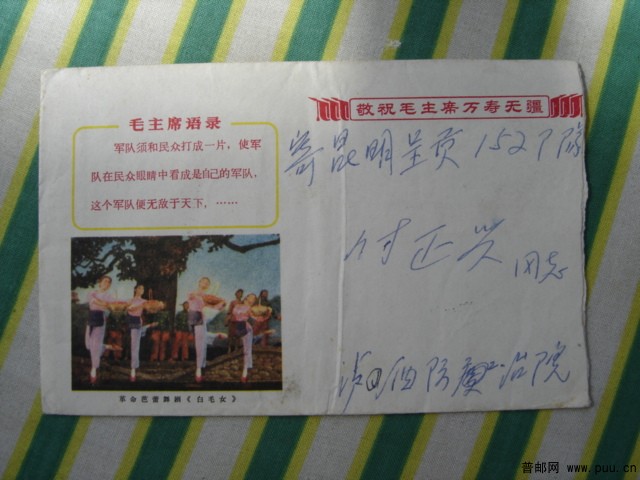 敬祝毛主席万寿无疆
毛主席语录
军队须和民众打成一片，使军
队在民众眼睛中看成是自己的军队，
这个军队便无敌于天下，……
革命芭蕾舞剧《白毛女》
寄昆明呈贡
付正兴 同志
院
普邮网 www.puu.cn